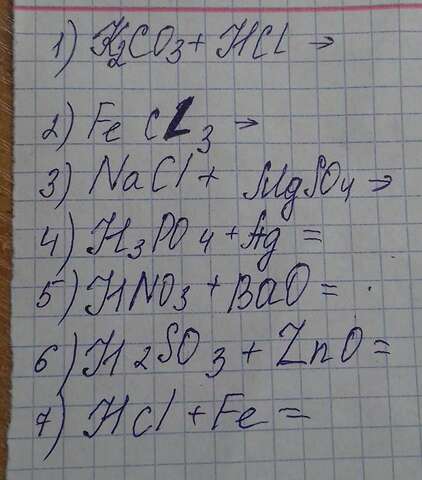 1) K2CO3 + HCl →
2) FeCl3 →
3) NaCl + MgSO4 →
4) H3PO4 + Ag =
5) HNO3 + BaO =
6) H2SO3 + ZnO =
7) HCl + Fe =